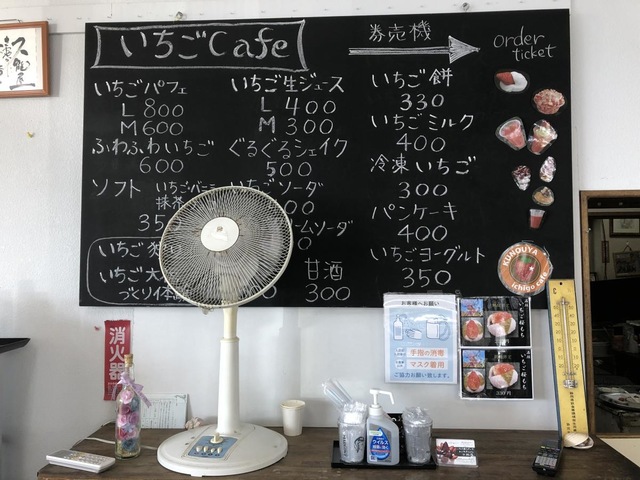 いちごCafe
券売機
order
ticket
いちごパフェ
L 800
M 600
ふわふわいちご
600
ソフト いちご・バニラ
抹茶
35
いちご
いちご大
づくり体験
いちご生ジュース
L 400
M 300
ぐるぐるシェイク
500
いちごソーダ
00
ームソーダ
0
甘酒
300
いちご餅
330
いちごミルク
400
冷凍いちご
300
パンケーキ
400
いちごヨーグルト
350
KUNOUYA
ichigo cafe
消火器
お客様へお願い
手指の消毒
マスク着用
ご協力お願い致します。
いちご桜もち
いちご桜もち
330円
ウイルス